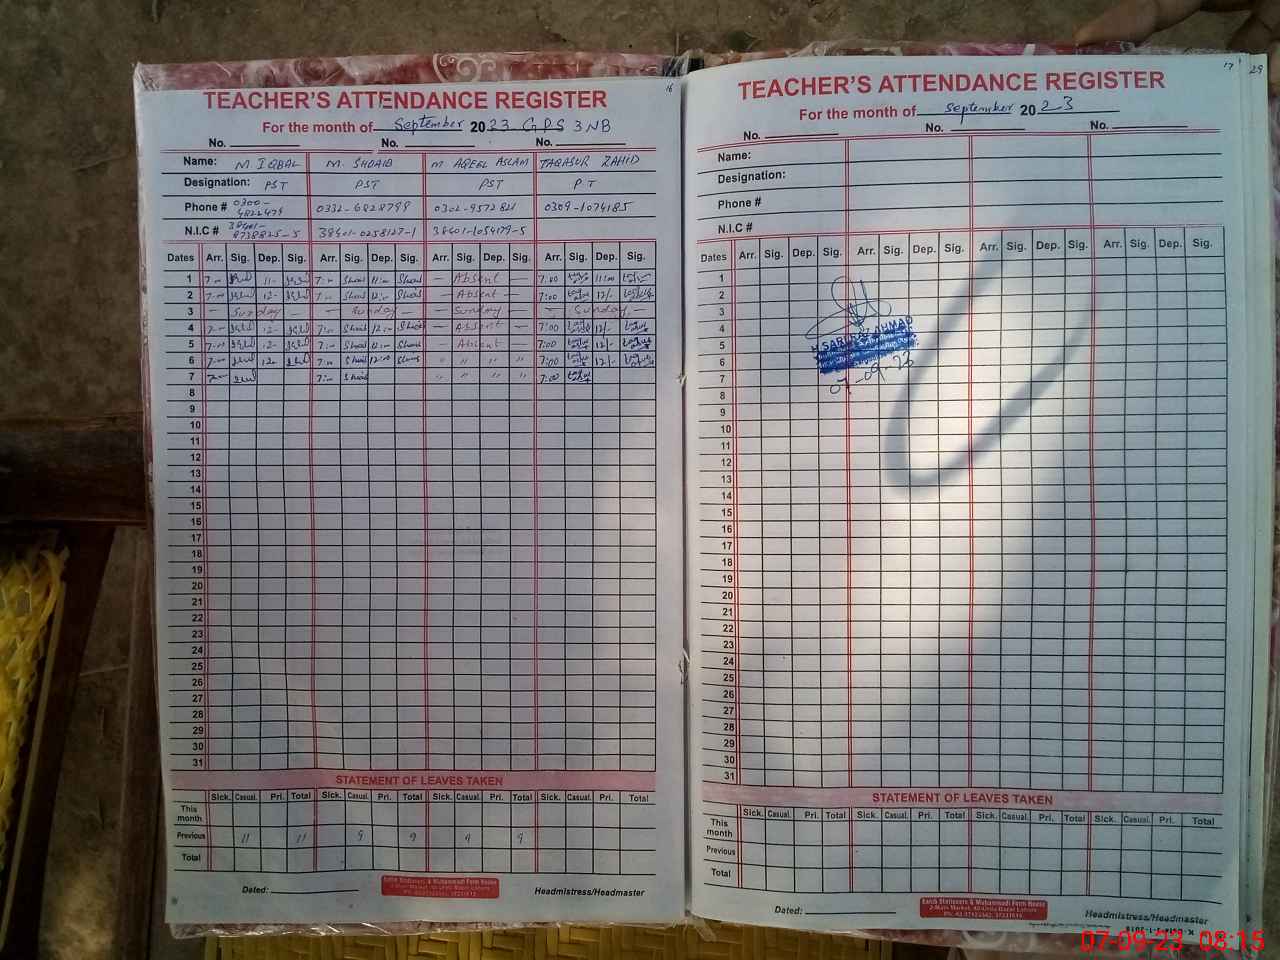 16
TEACHER'S ATTENDANCE REGISTER
For the month of September 2023 GPS 3NB
No. No. No.
Name: M IQBAL M. SHOAIB M AQEEL ASLAM TAQASUR ZAHID
Designation: PST PST PST PT
Phone # 0300-4822479 0332-6828799 0302-9572821 0309-1074185
N.I.C # 38401-8738825-5 38401-0258127-1 38401-1054179-5
Dates Arr. Sig. Dep. Sig. Arr. Sig. Dep. Sig. Arr. Sig. Dep. Sig. Arr. Sig. Dep. Sig.
1 7:- 11- 7:- 11:- — Absent — 7:00 11:00
2 7:- 12- 7:- 12:- — Absent — 7:00 12/-
3 — Sunday — — Sunday — — Sunday — — Sunday —
4 7:- 12- 7:- 12:- — Absent — 7:00 12/-
5 7:- 12- 7:- 12:- — Absent — 7:00 12/-
6 7:- 12- 7:- 12:00 " " " " 7:00 12/-
7 7:- 7:- " " " " 7:00
8
9
10
11
12
13
14
15
16
17
18
19
20
21
22
23
24
25
26
27
28
29
30
31
STATEMENT OF LEAVES TAKEN
Sick. Casual. Pri. Total Sick. Casual. Pri. Total Sick. Casual. Pri. Total Sick. Casual. Pri. Total
This month
Previous 11 11 9 9 9 9
Total
Dated: Headmistress/Headmaster
17
29
TEACHER'S ATTENDANCE REGISTER
For the month of September 2023
No. No. No.
Name:
Designation:
Phone #
N.I.C #
Dates Arr. Sig. Dep. Sig. Arr. Sig. Dep. Sig. Arr. Sig. Dep. Sig. Arr. Sig. Dep. Sig.
1
2
3
4
AHMAD
5
6
7
07-09-23
8
9
10
11
12
13
14
15
16
17
18
19
20
21
22
23
24
25
26
27
28
29
30
31
STATEMENT OF LEAVES TAKEN
Sick. Casual. Pri. Total Sick. Casual. Pri. Total Sick. Casual. Pri. Total Sick. Casual. Pri. Total
This month
Previous
Total
Dated: Headmistress/Headmaster
07-09-23 08:15